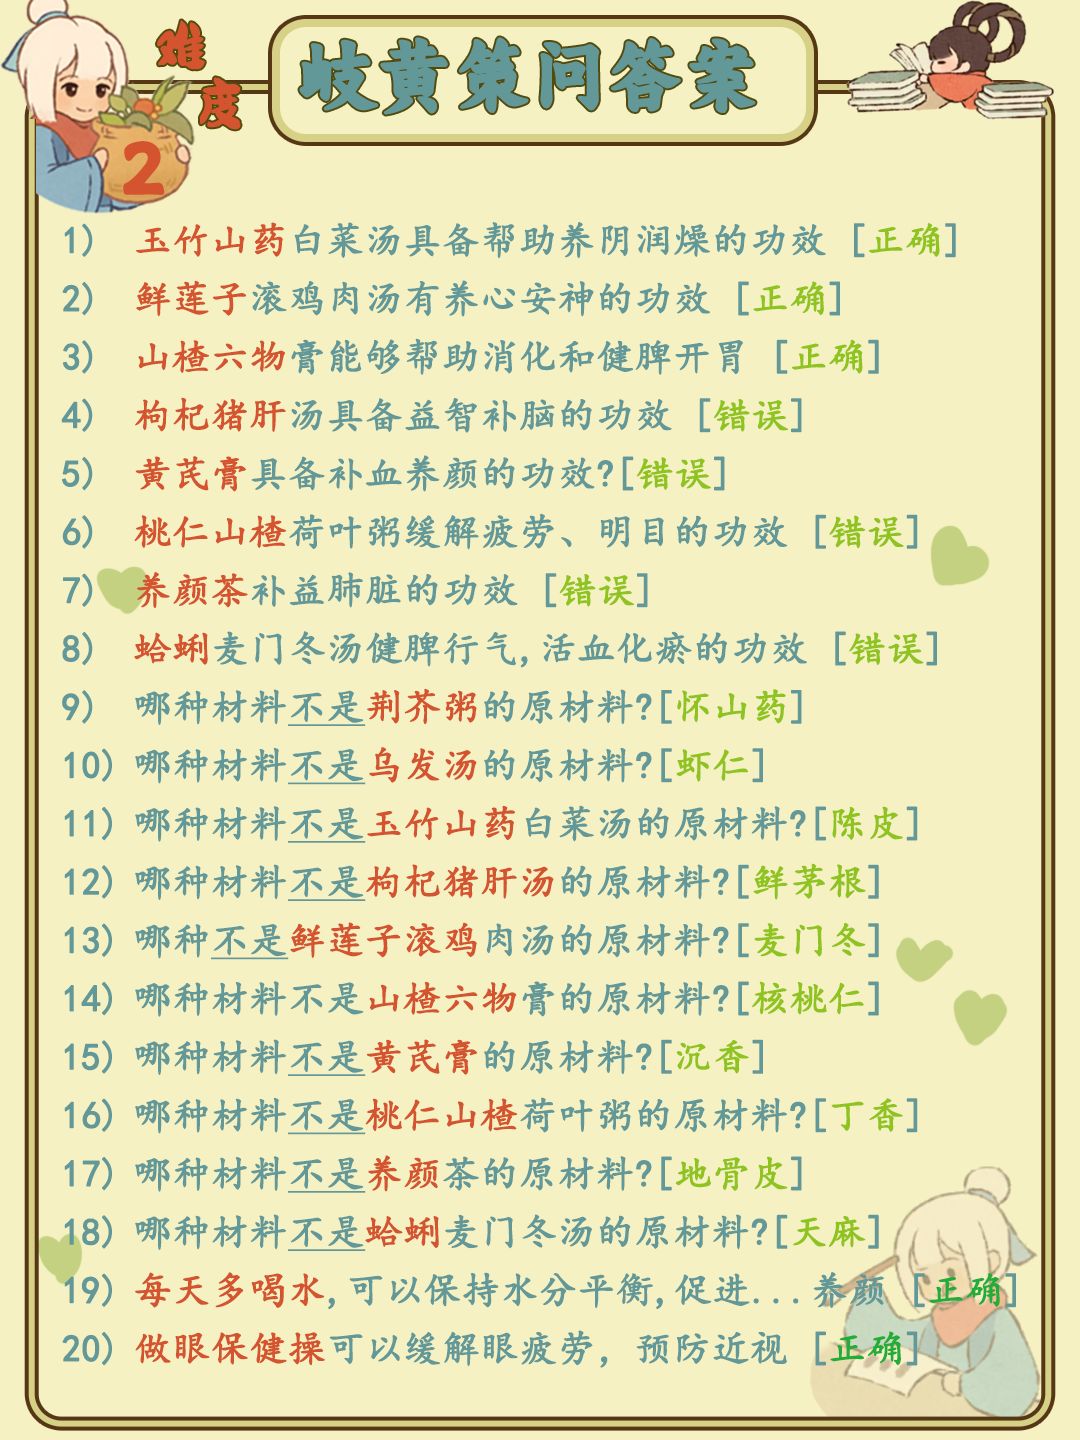 难度
2
岐黄策问答案
1) 玉竹山药白菜汤具备帮助养阴润燥的功效 [正确]
2) 鲜莲子滚鸡肉汤有养心安神的功效 [正确]
3) 山楂六物膏能够帮助消化和健脾开胃 [正确]
4) 枸杞猪肝汤具备益智补脑的功效 [错误]
5) 黄芪膏具备补血养颜的功效?[错误]
6) 桃仁山楂荷叶粥缓解疲劳、明目的功效 [错误]
7) 养颜茶补益肺脏的功效 [错误]
8) 蛤蜊麦门冬汤健脾行气,活血化瘀的功效 [错误]
9) 哪种材料不是荆芥粥的原材料?[怀山药]
10) 哪种材料不是乌发汤的原材料?[虾仁]
11) 哪种材料不是玉竹山药白菜汤的原材料?[陈皮]
12) 哪种材料不是枸杞猪肝汤的原材料?[鲜茅根]
13) 哪种不是鲜莲子滚鸡肉汤的原材料?[麦门冬]
14) 哪种材料不是山楂六物膏的原材料?[核桃仁]
15) 哪种材料不是黄芪膏的原材料?[沉香]
16) 哪种材料不是桃仁山楂荷叶粥的原材料?[丁香]
17) 哪种材料不是养颜茶的原材料?[地骨皮]
18) 哪种材料不是蛤蜊麦门冬汤的原材料?[天麻]
19) 每天多喝水,可以保持水分平衡,促进...养颜 [正确]
20) 做眼保健操可以缓解眼疲劳，预防近视 [正确]